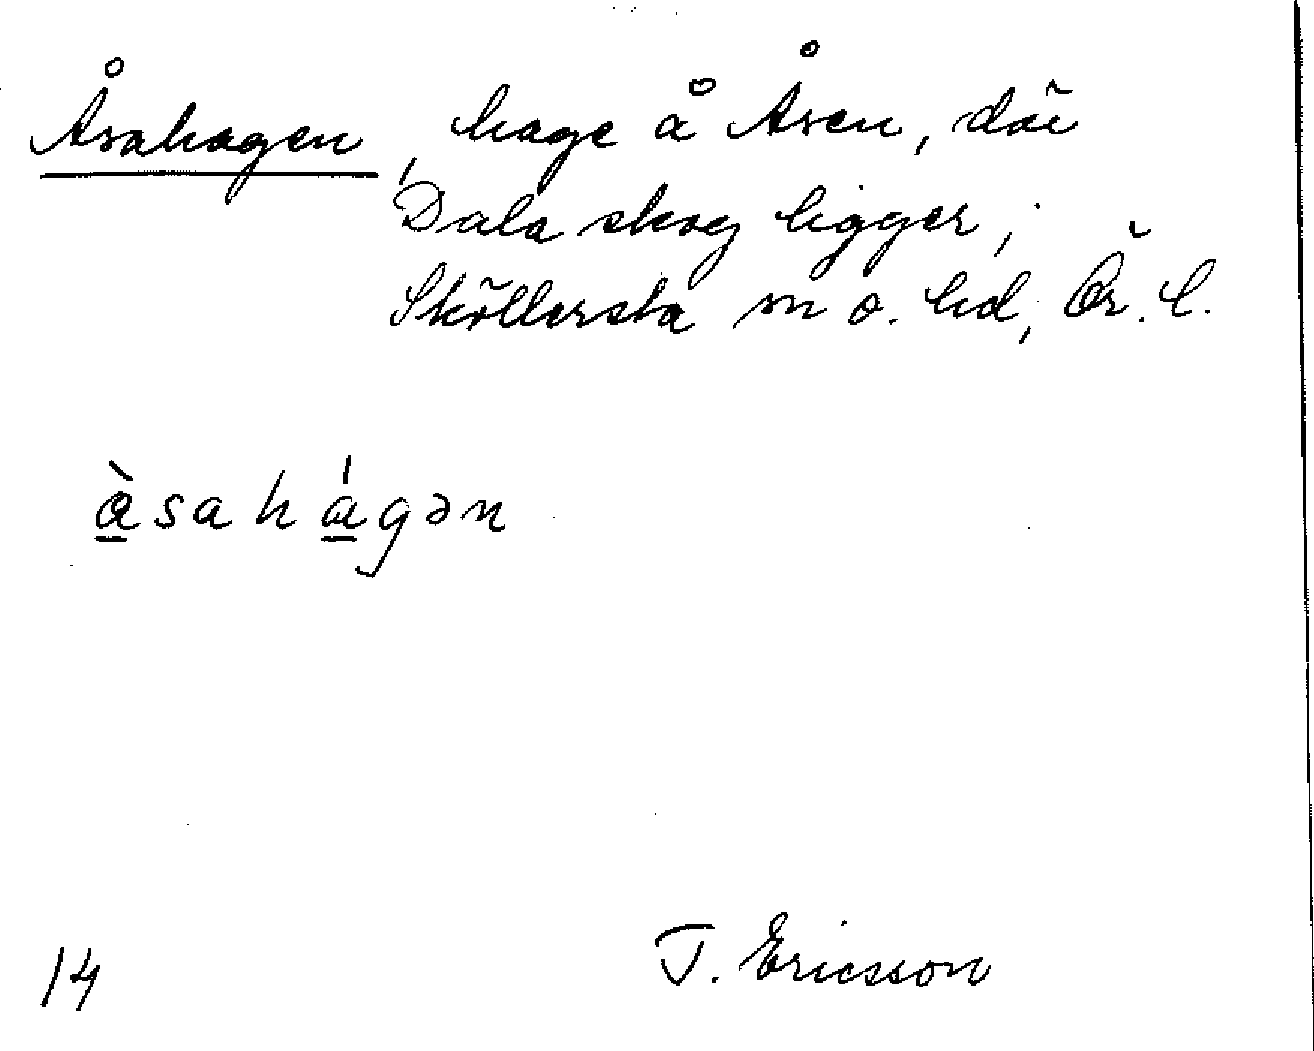 Åsahagen, hage å Åsen, där
Dala skog ligger;
Sköllersta sn o. hd, Ör. l.
à̱sahá̱gən
14 T. Ericsson